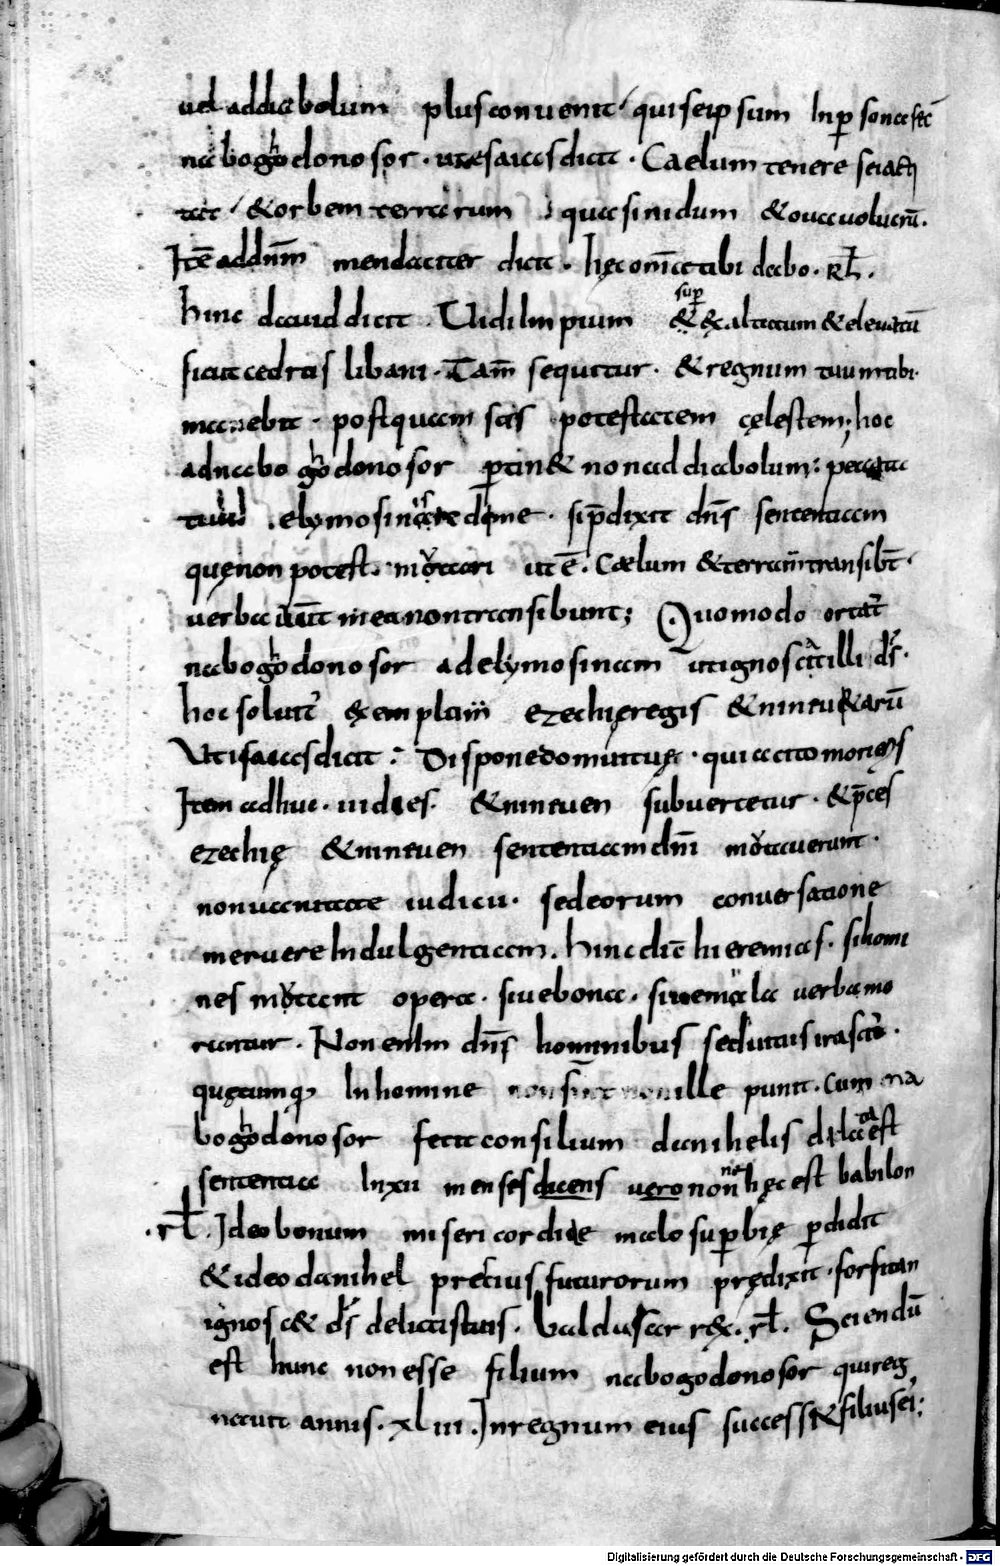 uel addiabolum plus conuenit qui seipsum In psona sec
nabogodonosor · ut esaias dicit · Caelum tenere se iact
tat / & orbem terrarum quasi nidum & oua uolucrū.
Itē ad dn̄m mendaciter dicit · hęc om̄a tibi dabo · rł.
hinc dauid dicit Uidi Impium sup & exaltatum & eleuatū
sicut cedrus libani · Tam̄ sequitur · & regnum tuum tibi
manebit · postquam scis potestatem cęlestem; hoc
ad nabogodonosor ptin& non ad diabolum: peccata
tua elymosinis redime · si p̄dixit dn̄s sententiam
quę non potest mutari ut ē. Caelum & terram transibt̄ ·
uerba aut̄ mea non transibunt; Quomodo ortat̄
nabogodonosor ad elymosinam ut ignoscat illi ds̄ ·
hoc soluit̄ exemplum ezechię regis & nineu&arū
Ut isaias dicit: Dispone domui tuę · quia cito morieris
Item adhuc · iii dies · & nineuen subuertetur · & p̄ces
ezechię & nineuen sententiam dn̄i mutauerunt ·
non uanitate iudicii · sed eorum conuersatione
meruere Indulgentiam. hinc dic̄ hieremias · si homi
nes mutant opera · siue bona · siue mala uerba mo
rantur · Non enim dn̄s hominibus sed uitiis irascit̄ ·
quę cum q; In homine non sunt non ille punit · Cum na
bogodonosor fecit consilium danihelis dilata est
sententia In xii menses dicens uero nonne hęc est babilon
· rł. Ideo bonum misericordiae malo supbię pdidit
& ideo danihel pretius futurorum prędixit · forsitan
ignosc& ds̄ delictis tuis · baldasar rex · rł. Sciendū
est hunc non esse filium nabogodonosor qui reg
nauit annis · xl iii. In regnum eius success& filius ei;
Digitalisierung gefördert durch die Deutsche Forschungsgemeinschaft - DFG